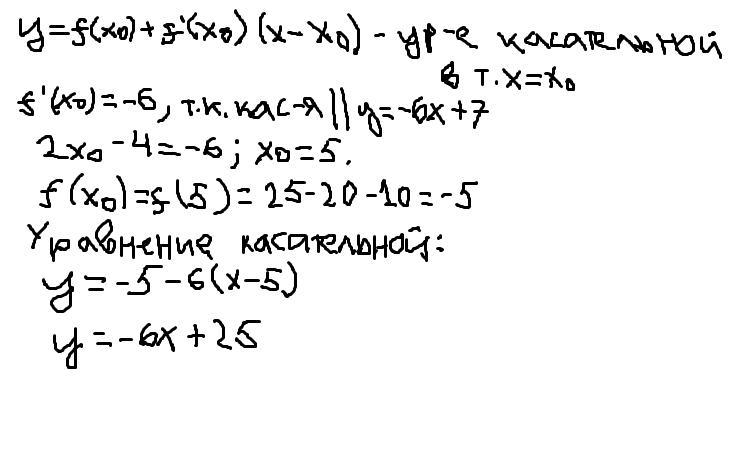 y=f(x0)+f'(x0)(x-x0) - ур-е касательной
в т.x=x0
f'(x0)=-6, т.к. кас-я || y=-6x+7
2x0-4=-6; x0=5.
f(x0)=f(5)=25-20-10=-5
Уравнение касательной:
y=-5-6(x-5)
y=-6x+25